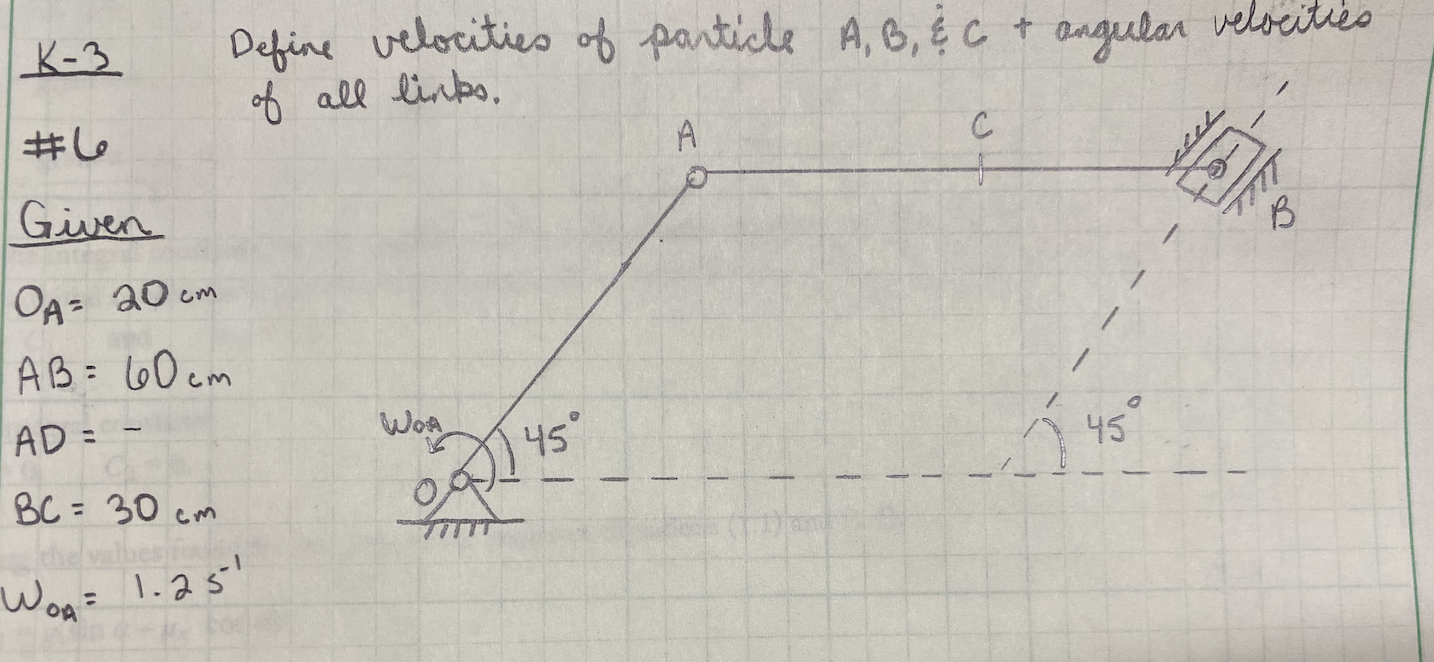 K-3
Define velocities of particle A, B, & C + angular velocities
of all links.
#6
Given
OA= 20 cm
AB= 60 cm
AD= -
BC= 30 cm
WOA= 1.2 s-1
A
C
B
WOA
45°
O
45°